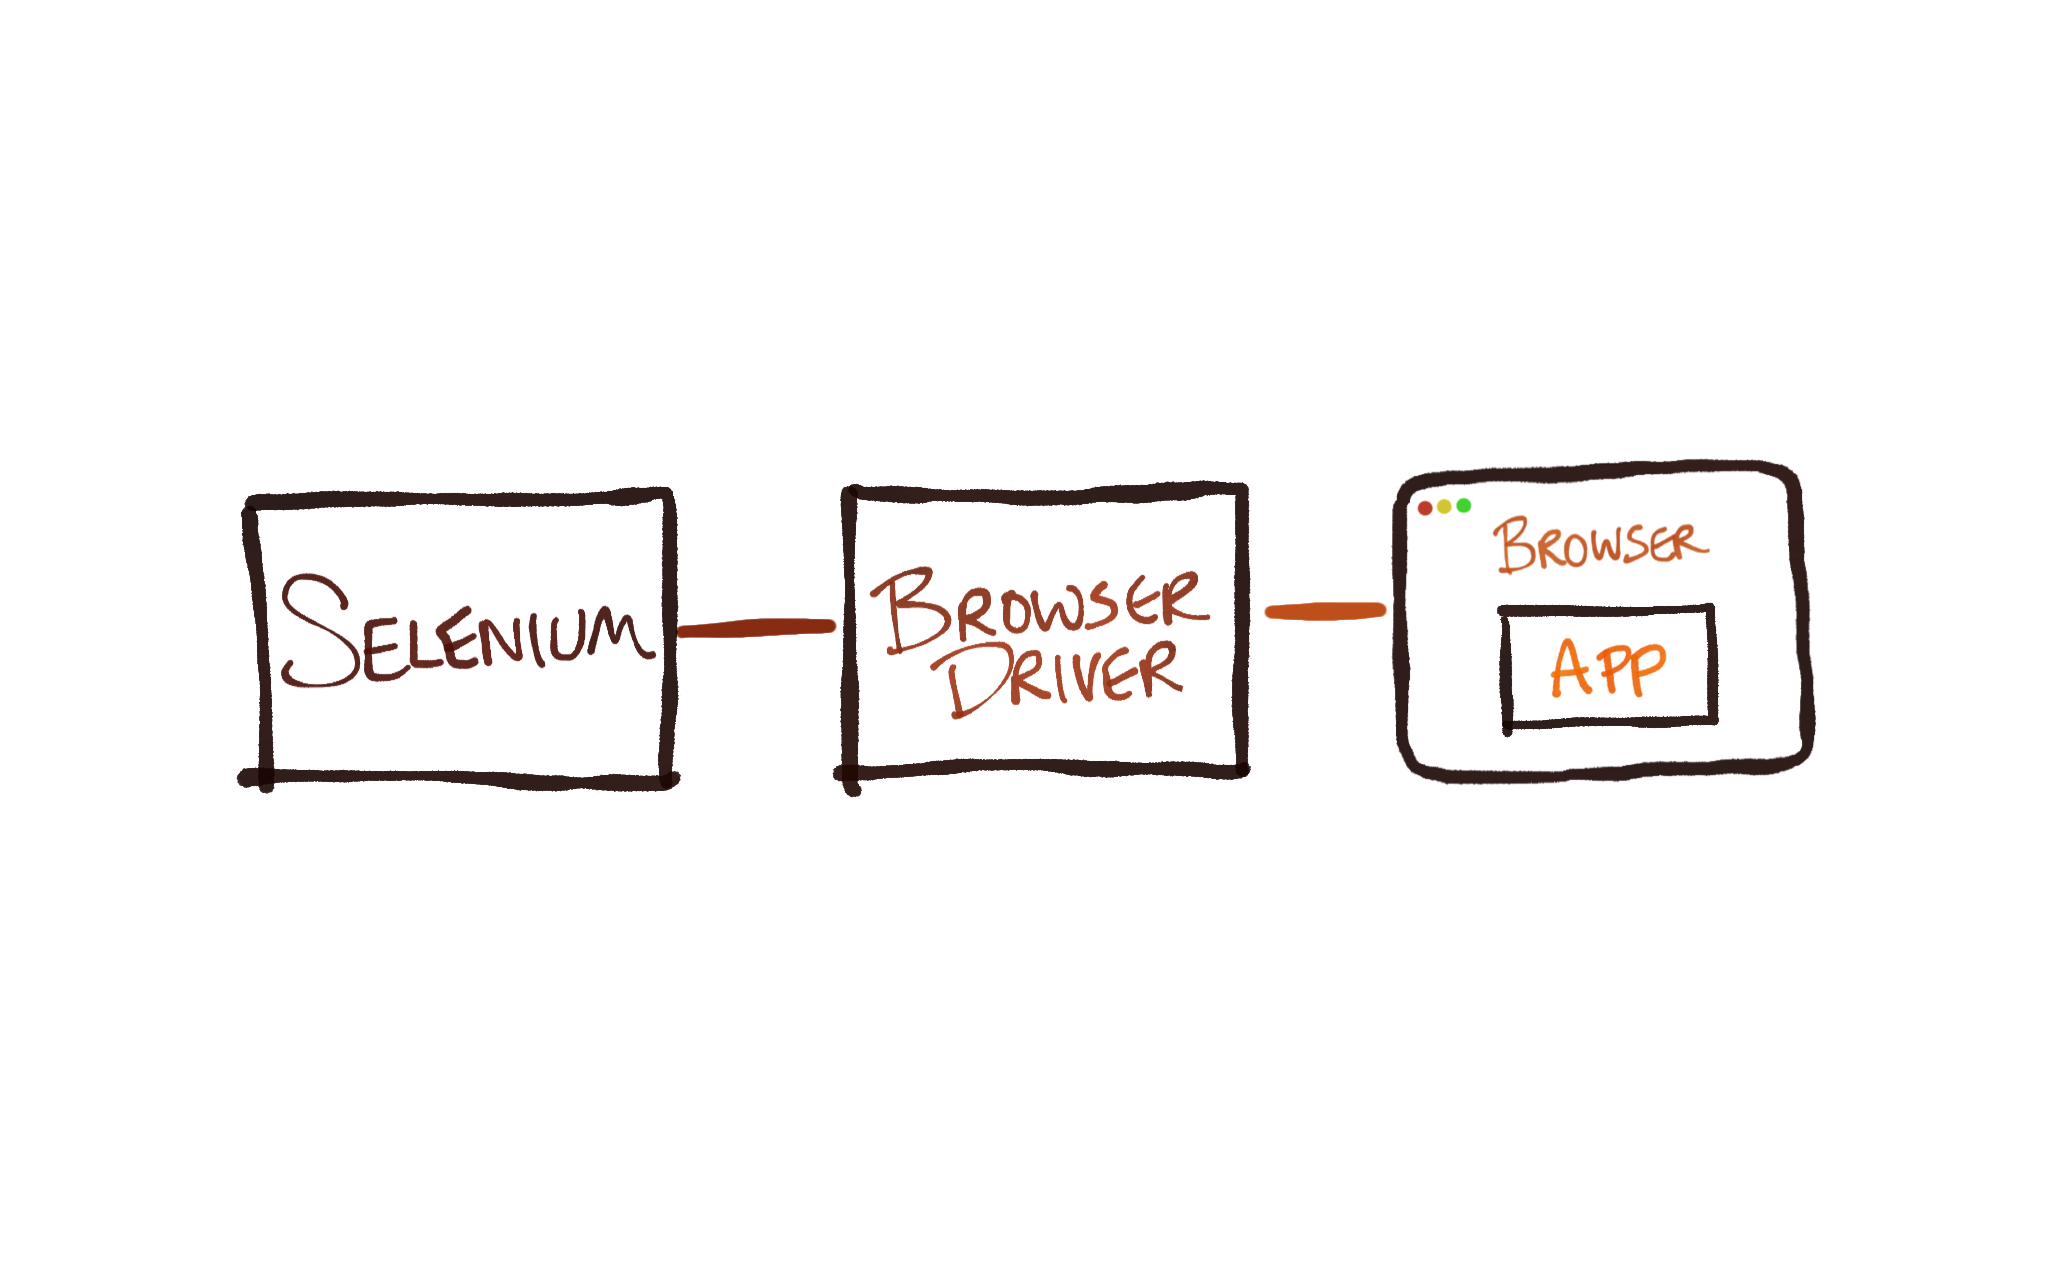 SELENIUM
BROWSER
DRIVER
BROWSER
APP